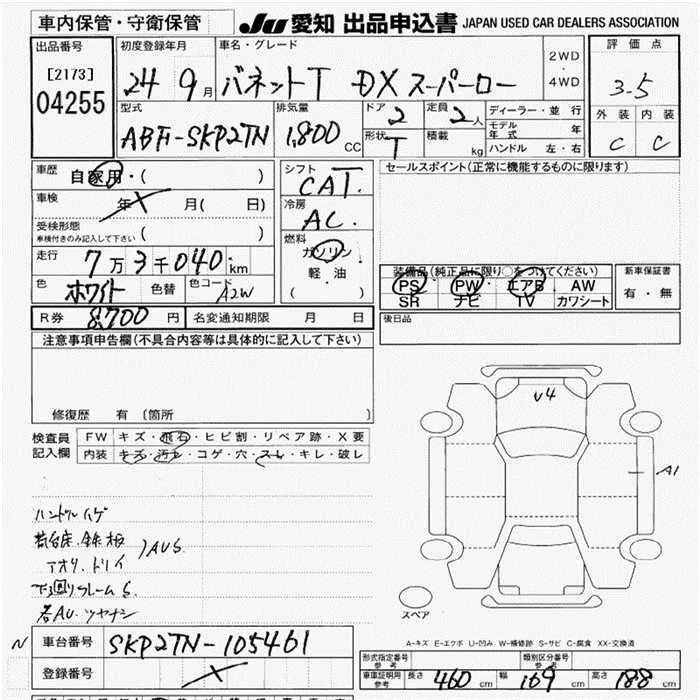 車内保管・守衛保管
JU 愛知 出品申込書 JAPAN USED CAR DEALERS ASSOCIATION
出品番号
[2173]
04255
初度登録年月
24 9月
車名・グレード
バネットT DX スーパーロー
2WD
・
4WD
評価点
3.5
外装 内装
C C
型式
ABF-SKP2TN
排気量
1,800 CC
ドア 2
形状 T
定員 2人
積載 kg
ディーラー・並行
モデル年式 年
ハンドル 左・右
車歴 自家用・( )
車検 年 月( 日)
受検形態
車検付きのみ記入して下さい ( )
走行 7万3千040km
色 ホワイト 色替 色コード A2W
シフト
CAT.
冷房
AC.
燃料
ガソリン
軽・油
( )
セールスポイント(正常に機能するものに限ります)
装備品(純正品に限り○をつけてください)
PS PW エアB AW
SR ナビ TV カワシート
新車保証書
有・無
R券 8,700 円 名変通知期限 月 日
後日品
注意事項申告欄(不具合内容等は具体的に記入して下さい)
修復歴 有 〔箇所
検査員
記入欄
FW キズ・飛石・ヒビ割・リペア跡・X要
内装 キズ・汚レ・コゲ・穴・スレ・キレ・破レ
ハンドルハゲ
荷台床.鉄板
アオリ.トリイ
)AUS
下回りフレームS
各AU.ツヤナシ
U4
A1
スペア
A-キズ E-エクボ U-凹み W-補修跡 S-サビ C-腐食 XX-交換済
N 車台番号 SKP2TN-105461
登録番号
形式指定番号
参考
類別区分番号
参考
車庫証明用
参考
長さ 460 cm 幅 169 cm 高さ 188 cm